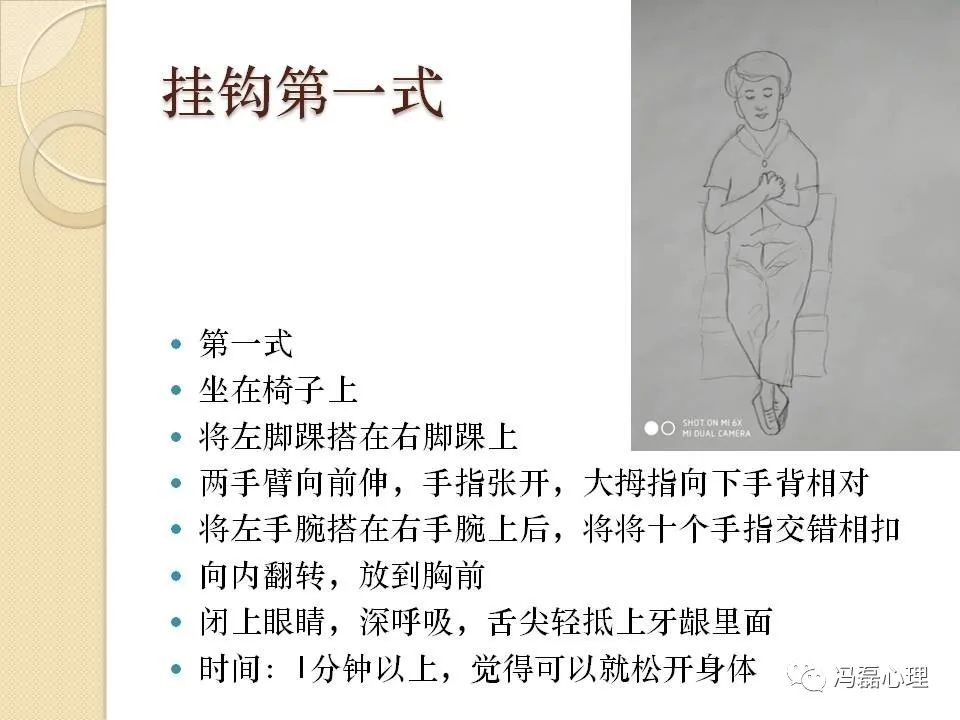 挂钩第一式
SHOT ON MI 6X
MI DUAL CAMERA
第一式
坐在椅子上
将左脚踝搭在右脚踝上
两手臂向前伸，手指张开，大拇指向下手背相对
将左手腕搭在右手腕上后，将将十个手指交错相扣
向内翻转，放到胸前
闭上眼睛，深呼吸，舌尖轻抵上牙龈里面
时间：1分钟以上，觉得可以就松开身体
冯磊心理